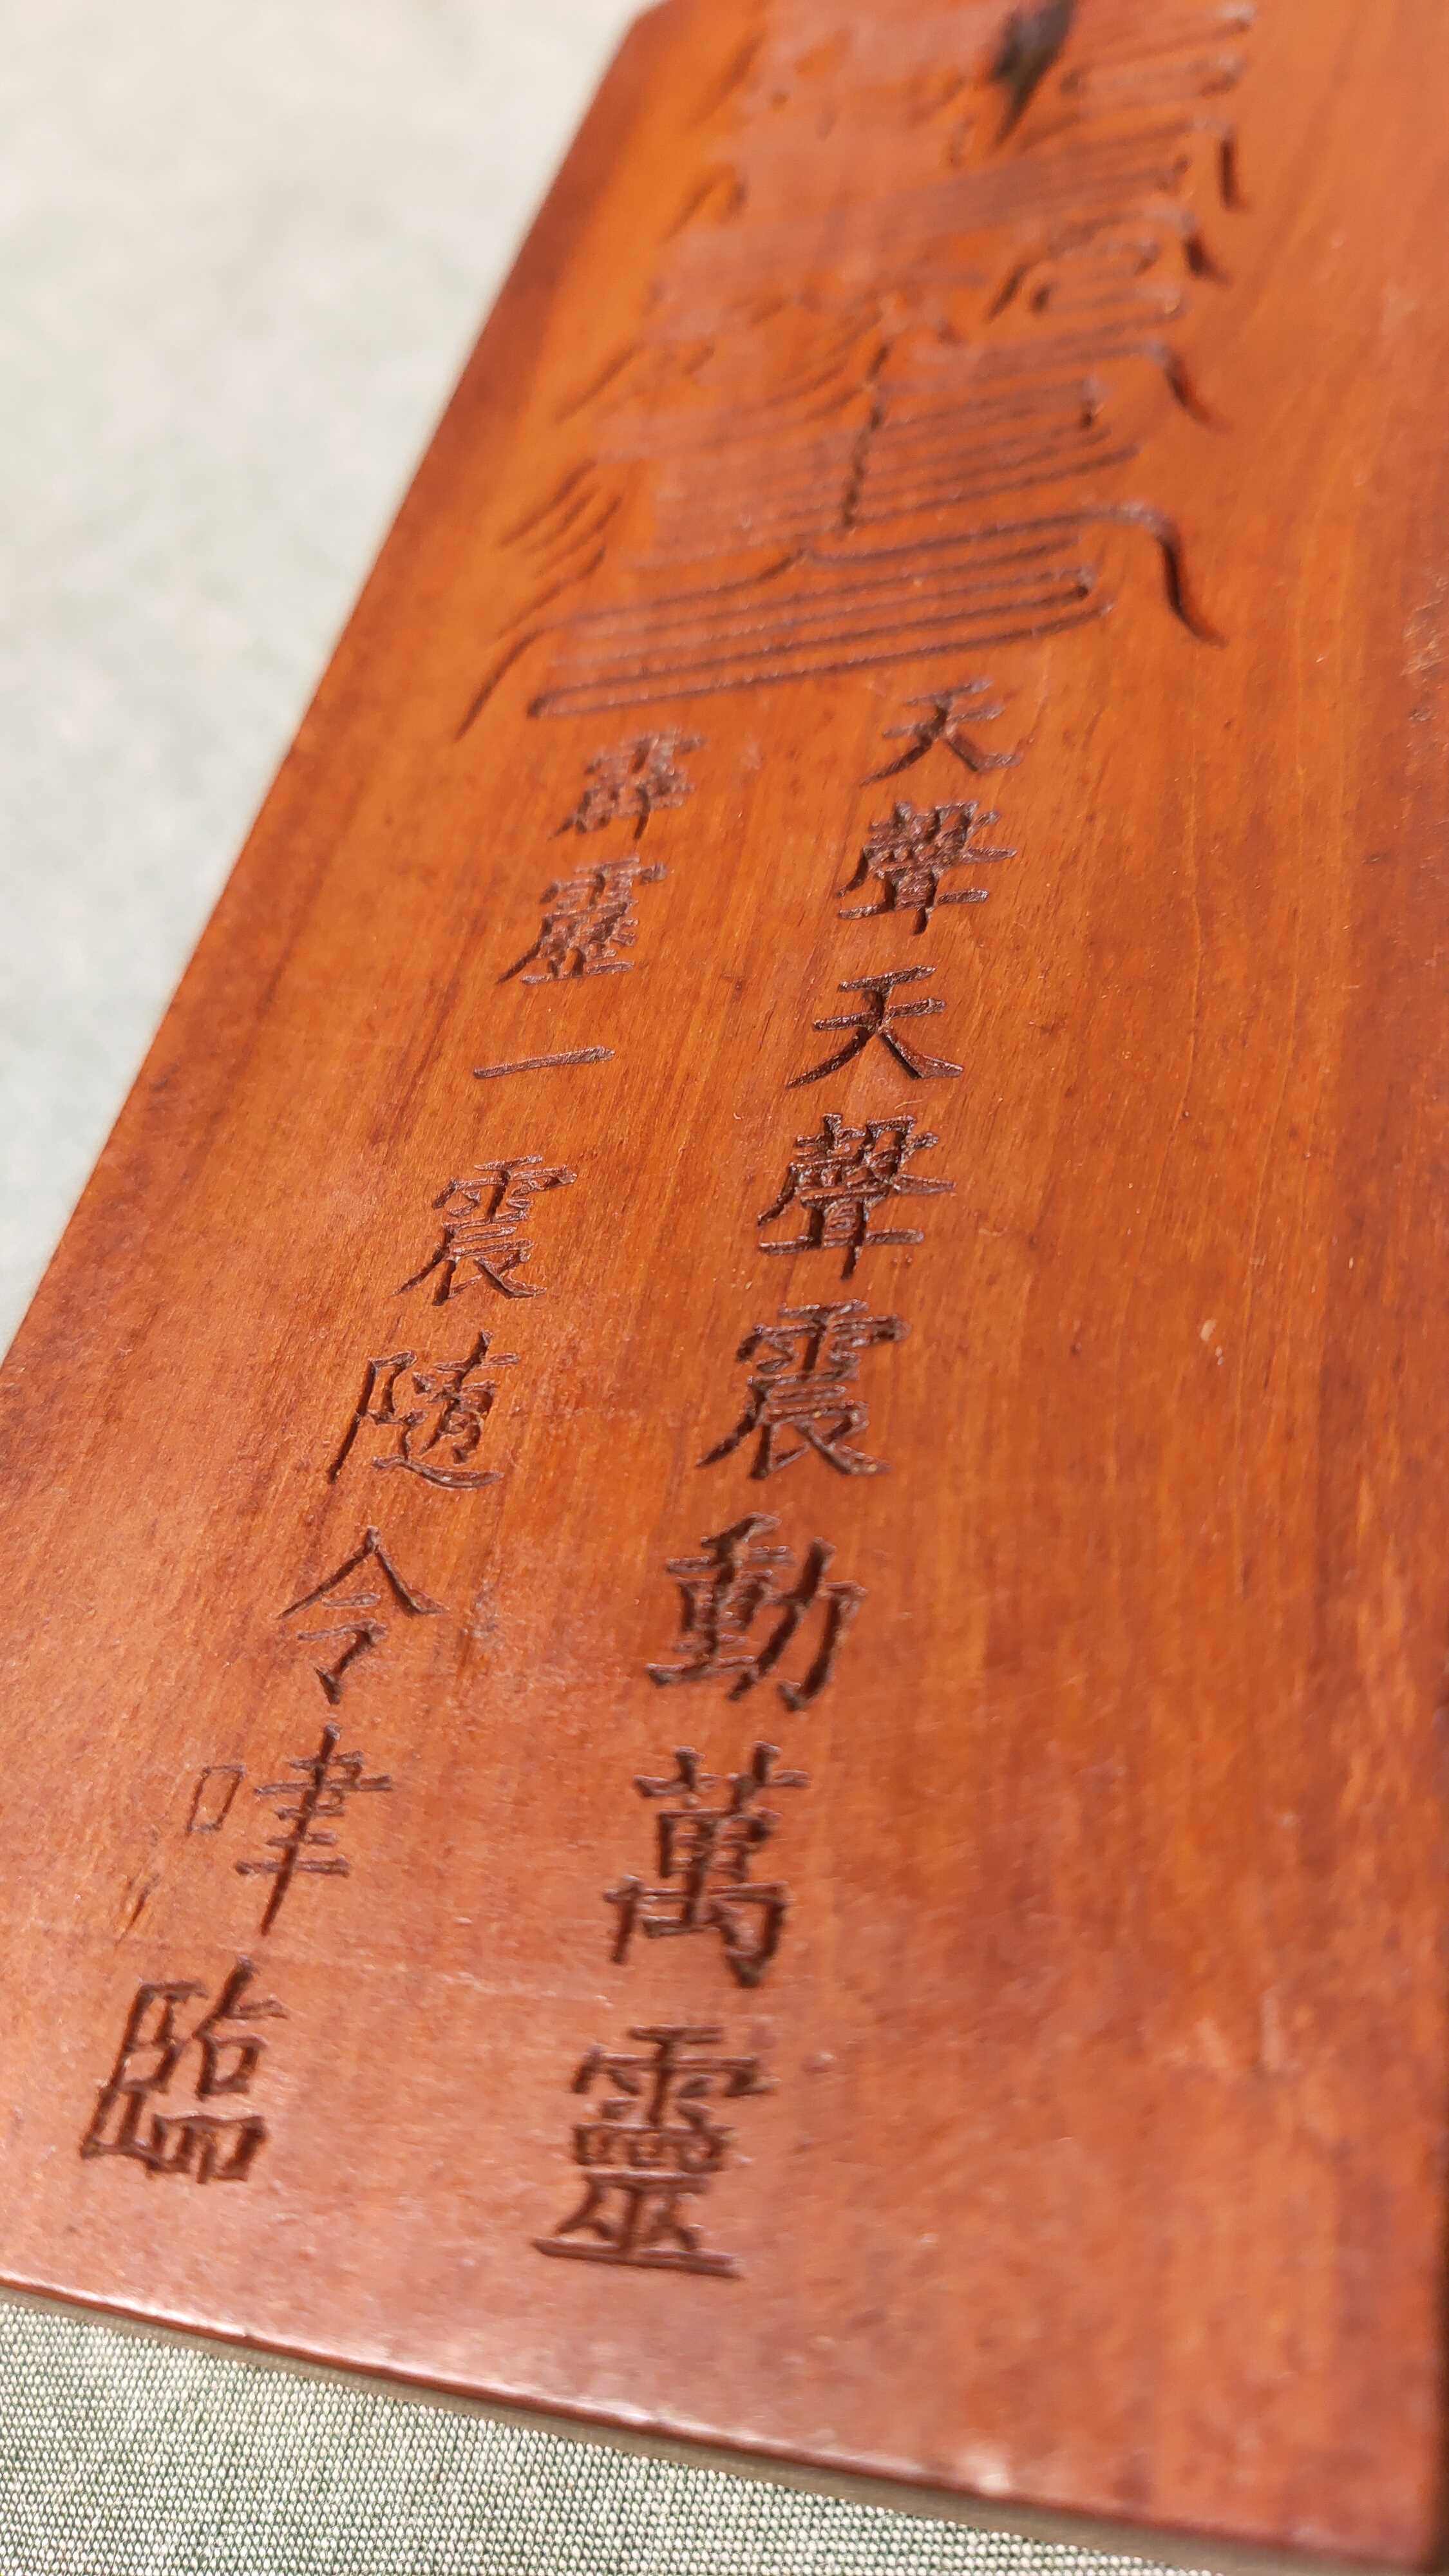 天聲天聲震動萬靈
霹靂一震隨令臨